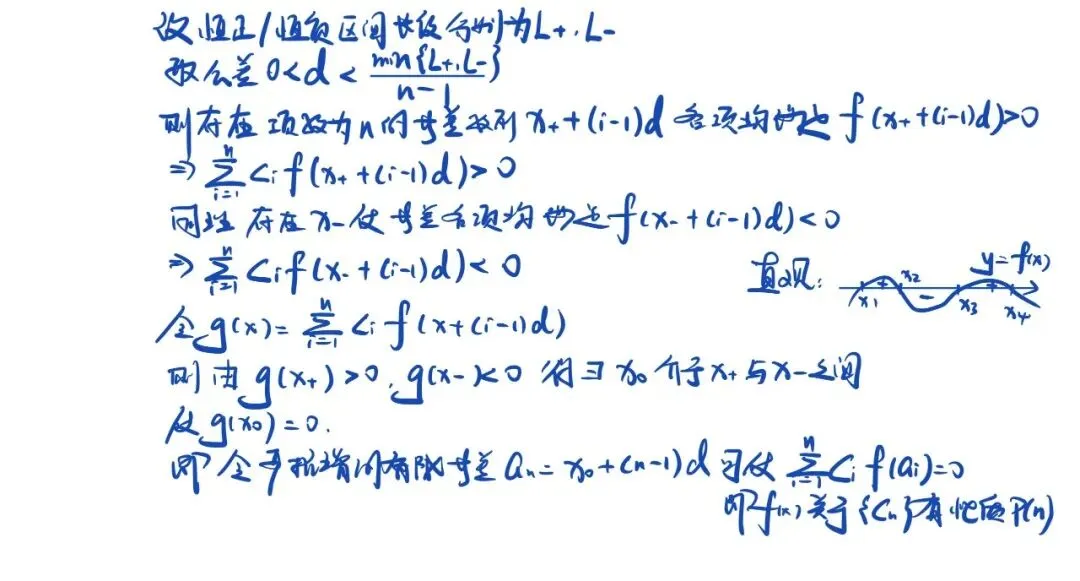 设恒正/恒负区间长度分别为L+,L-
取公差 0<d<min{L+,L-}/(n-1)
则存在项数为n的等差数列 x₊+(i-1)d 各项均满足 f(x₊+(i-1)d)>0
⇒ ∑_{i=1}^{n} Cᵢf(x₊+(i-1)d)>0
同理 存在x₋使等差各项均满足f(x₋+(i-1)d)<0
⇒ ∑_{i=1}^{n} Cᵢf(x₋+(i-1)d)<0
直观: x₁ + x₂ - x₃ x₄ y=f(x)
令g(x)=∑_{i=1}^{n} Cᵢf(x+(i-1)d)
则由g(x₊)>0,g(x₋)<0 得∃x₀介于x₊与x₋之间
使g(x₀)=0.
即令严格增的有限等差aₙ=x₀+(n-1)d可使∑_{i=1}^{n} Cᵢf(aᵢ)=0
即f(x)关于{Cₙ}有性质P(n)